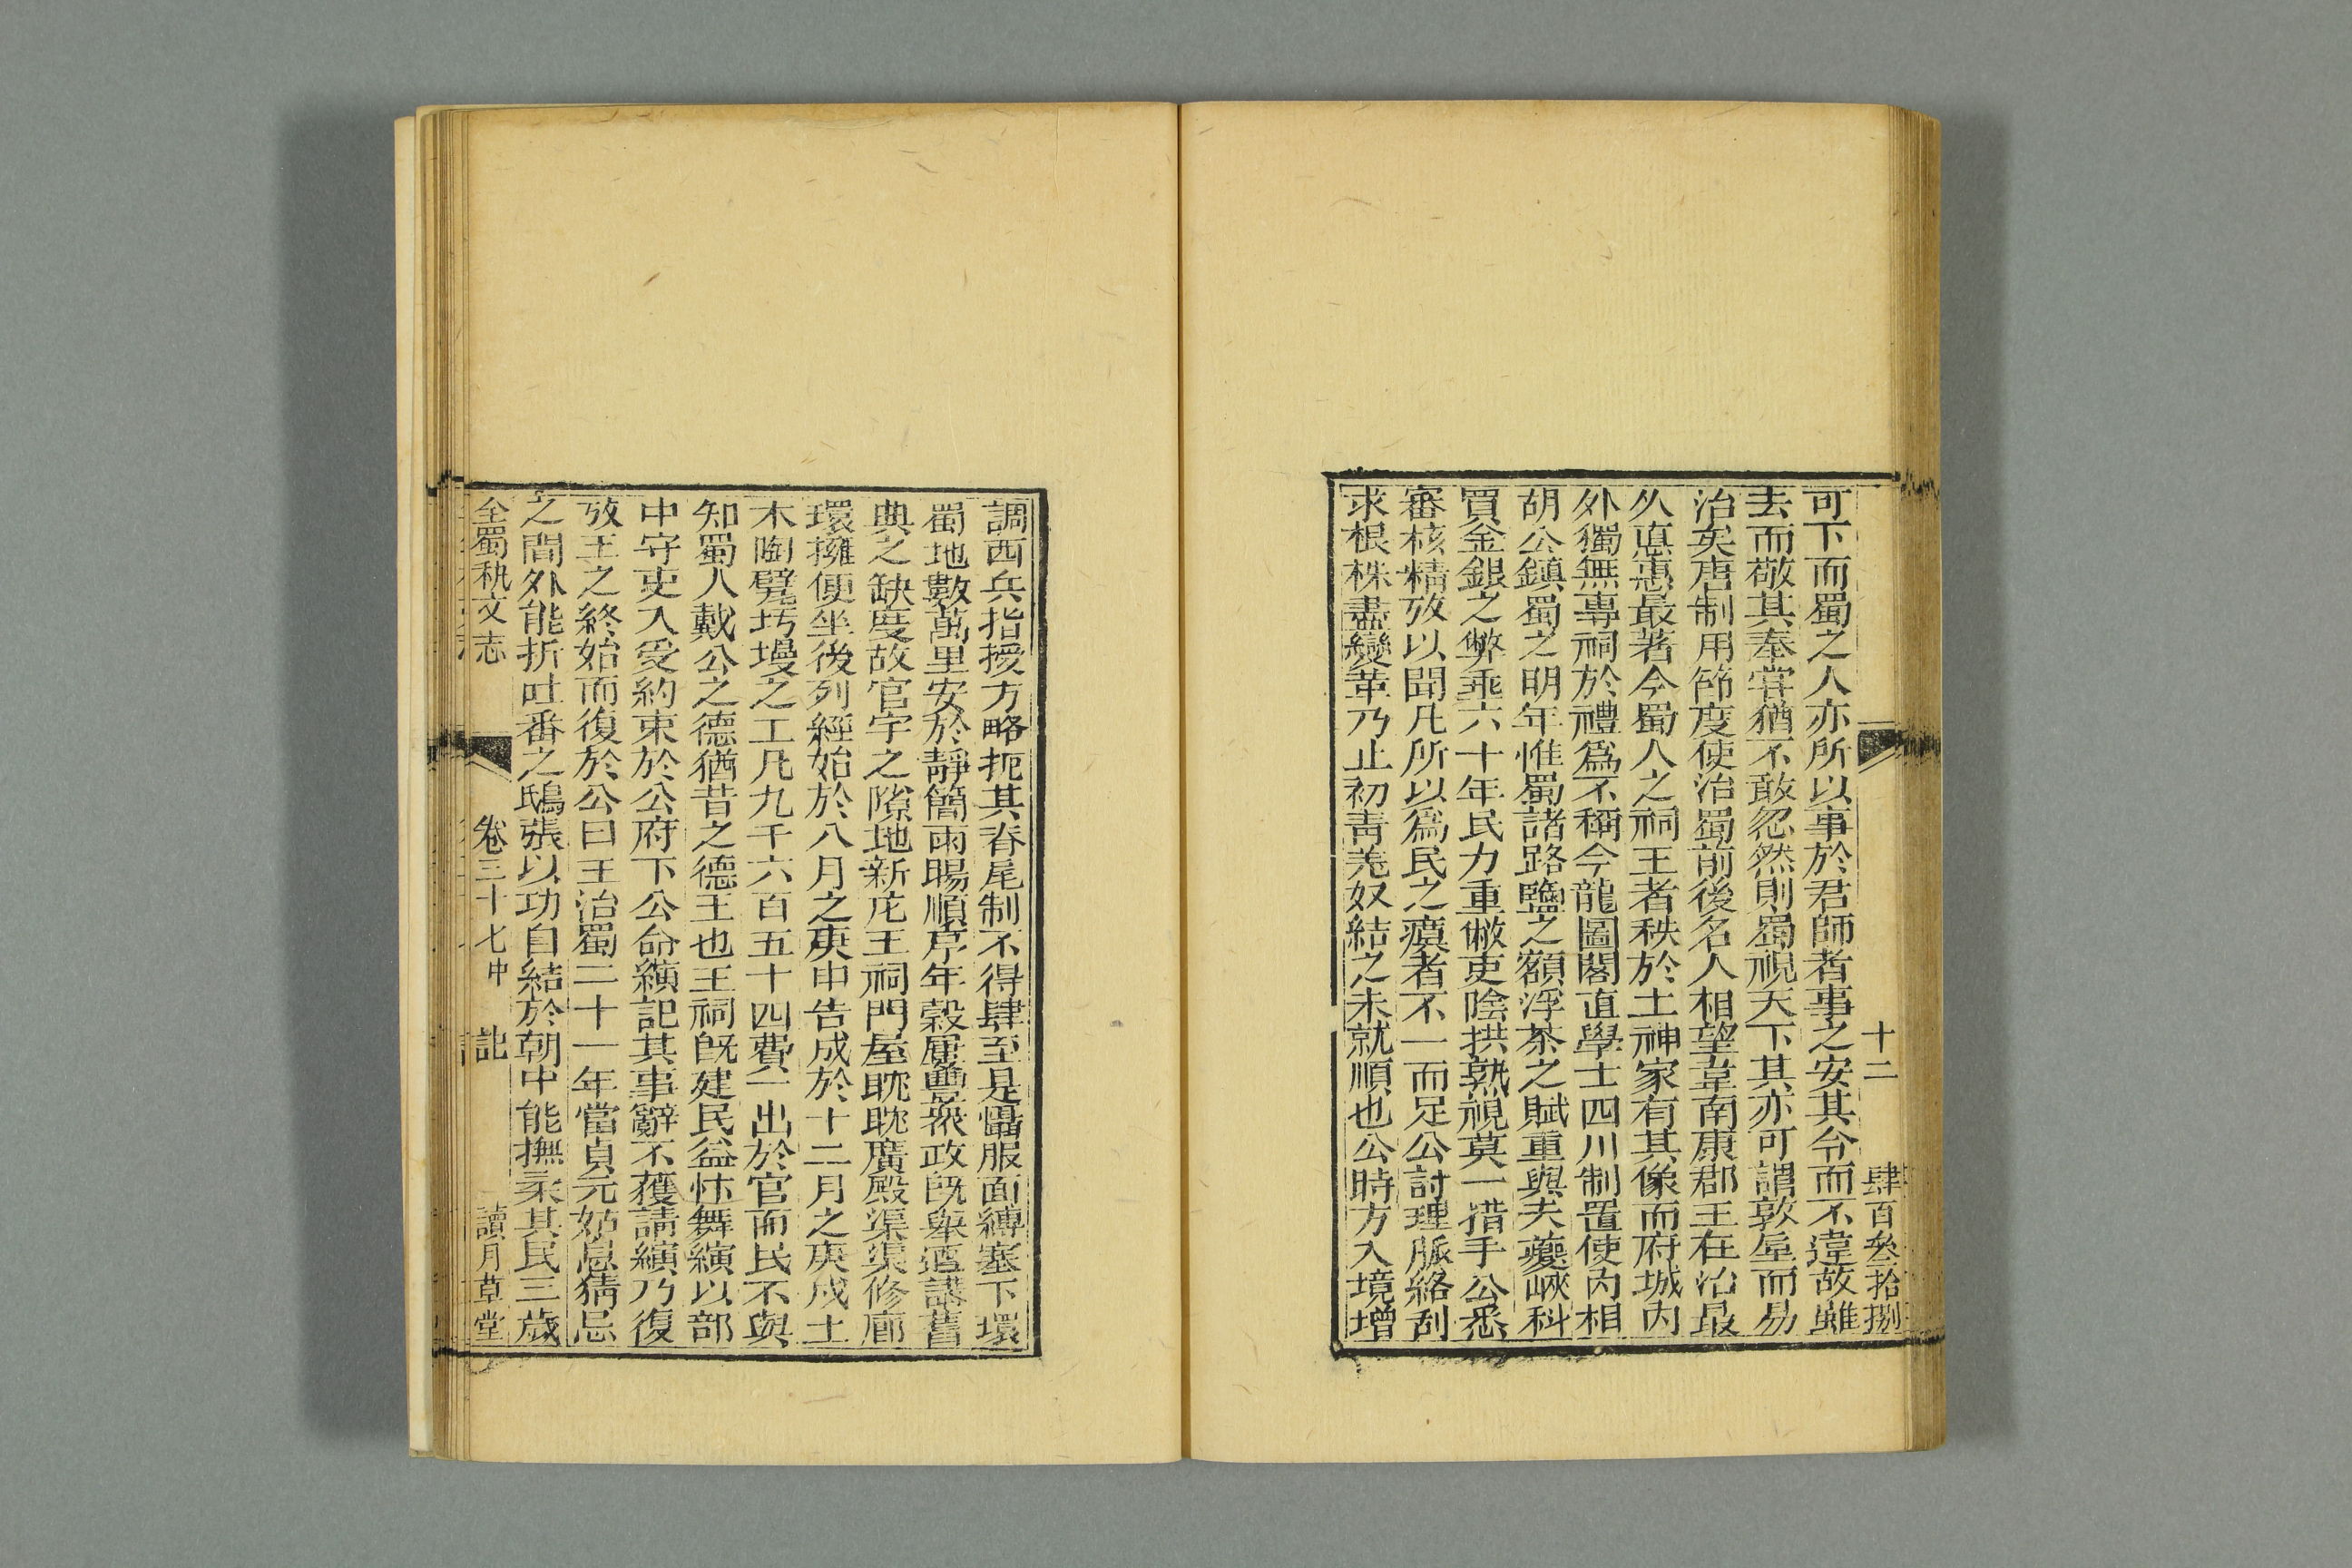 十二　肆百叁拾捌
可下而蜀之人亦所以事於君師者事之安其令而不違故雖
去而敬其奉嘗猶不敢忽然則蜀視天下其亦可謂敦厖而易
治矣唐制用節度使治蜀前後名人相望韋南康郡王在治最
久惪惠最著今蜀人之祠王者秩於土神家有其像而府城内
外獨無專祠於禮爲不稱今龍圖閣直學士四川制置使内相
胡公鎮蜀之明年惟蜀諸路鹽之額浮茶之賦重與夫夔峽科
買金銀之弊垂六十年民力重僘吏陰拱熟視莫一措手公悉
審核精攷以聞凡所以爲民之瘼者不一而足公討理脈絡刮
求根株盡變革乃止初青羌奴結之未就順也公時方入境增
調西兵指授方略扼其脊尾制不得肆至是懾服面縛塞下環
蜀地數萬里安於靜簡雨暘順序年穀屢豐衆政既舉迺講舊
典之缺度故官宇之隙地新庀王祠門屋眈眈廣殿渠渠修廊
環擁便坐後列經始於八月之庚申告成於十二月之庚戌土
木陶甓圬墁之工凡九千六百五十四費一出於官而民不與
知蜀人戴公之德猶昔之德王也王祠旣建民益怵舞縯以部
中守吏入受約束於公府下公命縯記其事辭不獲請縯乃復
攷王之終始而復於公曰王治蜀二十一年當貞元姑息猜忌
之間外能折吐番之鴟張以功自結於朝中能撫柔其民三歲
全蜀秇文志　卷三十七中　記　讀月草堂